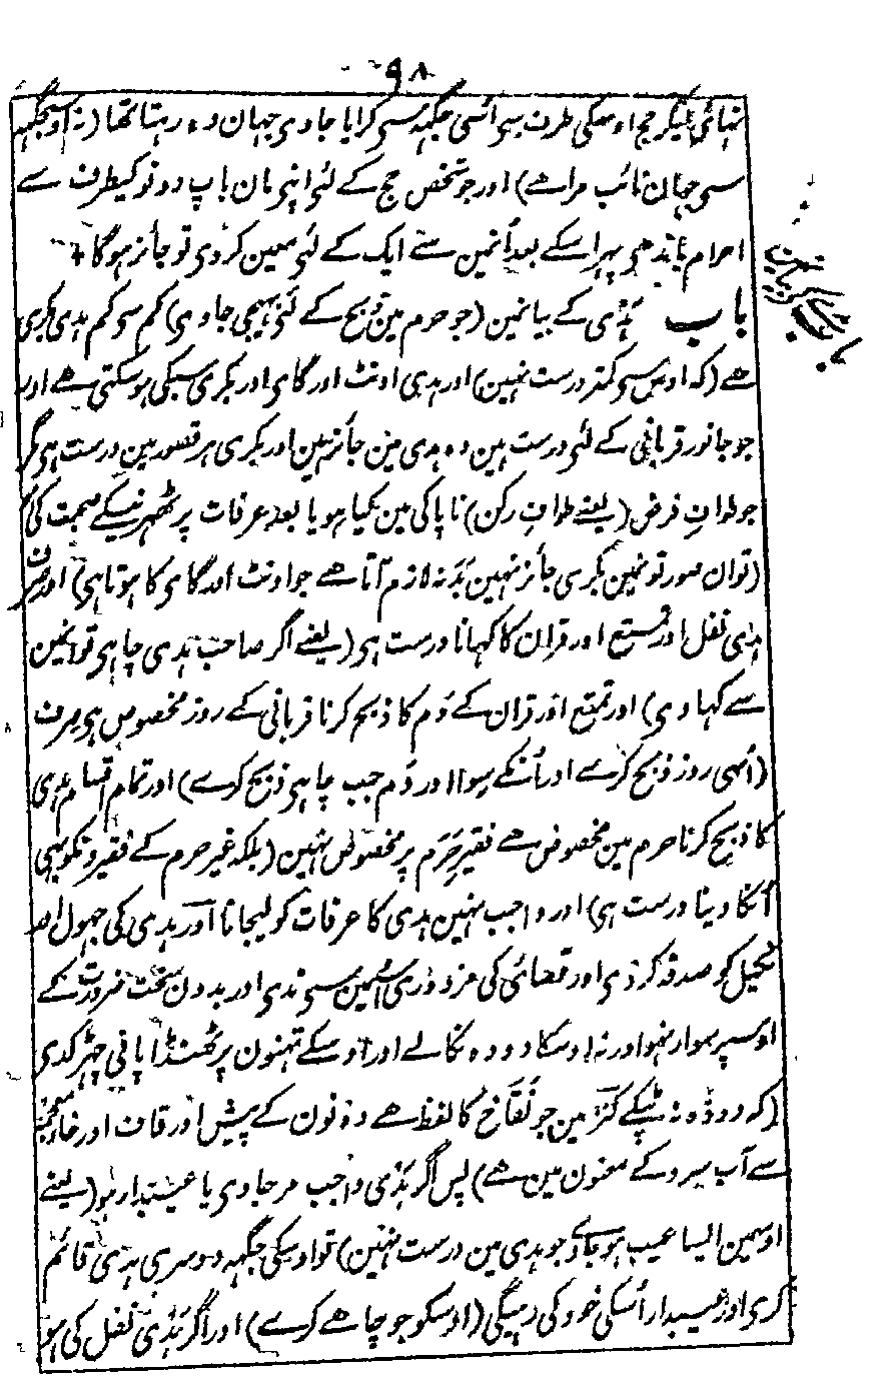 ٩٨
تہائی لیکر حج اوسکی طرف سے اُسی جگہہ سی کرایا جاوی جہان وہ رہتا تھا (نہ اوسجگہہ
سی جہان نائب مرا ھے) اور جو شخص حج کے لئی اپنی مان باپ دونو کیطرف سے
احرام باندھی پہر اسکے بعد اُنمین سے ایک کے لئی معین کر دی تو جائز ہوگا +
باب ہَدْی کے بیانمین (جو حرم مین ذبح کے لئی بہیجی جاوی) کم سی کم ہدی بکری
ھے (کہ اوس سی کمتر درست نہین) اور ہدی اونٹ اور گای اور بکری سبکی ہوسکتی ھے اور
جو جانور قربانی کے لئی درست ہین وہ ہدی مین جائز ہین اور بکری ہر قصور مین درست ہی مگر
جو طوافِ فرض (یعنے طوافِ رکن) ناپاکی مین کیا ہو یا بعد عرفات پر ٹھہرنیکے صحبت کی
(تو ان صورتونمین بکری جائز نہین بَدَنہ لازم آتا ھے جو اونٹ اور گای کا ہوتا ہی) اور صرف
ہدی نفل اور تمتع اور قران کا کہانا درست ہی (یعنے اگر صاحب ہدی چاہی تو انمین
سے کہاوی) اور تمتع اور قران کے دَم کا ذبح کرنا قربانی کے روز مخصوص ہی صرف
(اُسی روز ذبح کرے اور اُنکے سوا اور دَم جب چاہی ذبح کرے) اور تمام اقسام ہدی
کا ذبح کرنا حرم مین مخصوص ھے فقیرِ حَرَم پر مخصوص نہین (بلکہ غیر حرم کے فقیرونکو بہی
اُنکا دینا درست ہی) اور واجب نہین ہدی کا عرفات کو لیجانا اور ہدی کی جہول اور
نکیل کو صدقہ کر دی اور قصائی کی مزدوری اُسمین سی ندی اور بدون سخت ضرورت کے
اوسپر سوار نہو اور نہ اوسکا دودہ نکالے اور اوسکے تہنون پر ٹھنڈا پانی چہڑکدی
(کہ دودہ نہ ٹپکے کنز مین جو نُقَاخ کا لفظ ھے وہ نون کے پیش اور قاف اور خاء معجمہ
سے آب سرد کے معنون مین ھے) پس اگر ہَدْی واجب مر جاوی یا عیبدار ہو (یعنے
اوسمین ایسا عیب ہو جاوے جو ہدی مین درست نہین) تو اوسکی جگہہ دوسری ہدی قائم
کری اور عیبدار اُسکی خود کی رہیگی (اوسکو جو چاھے کرے) اور اگر ہَدْی نفل کی ہو